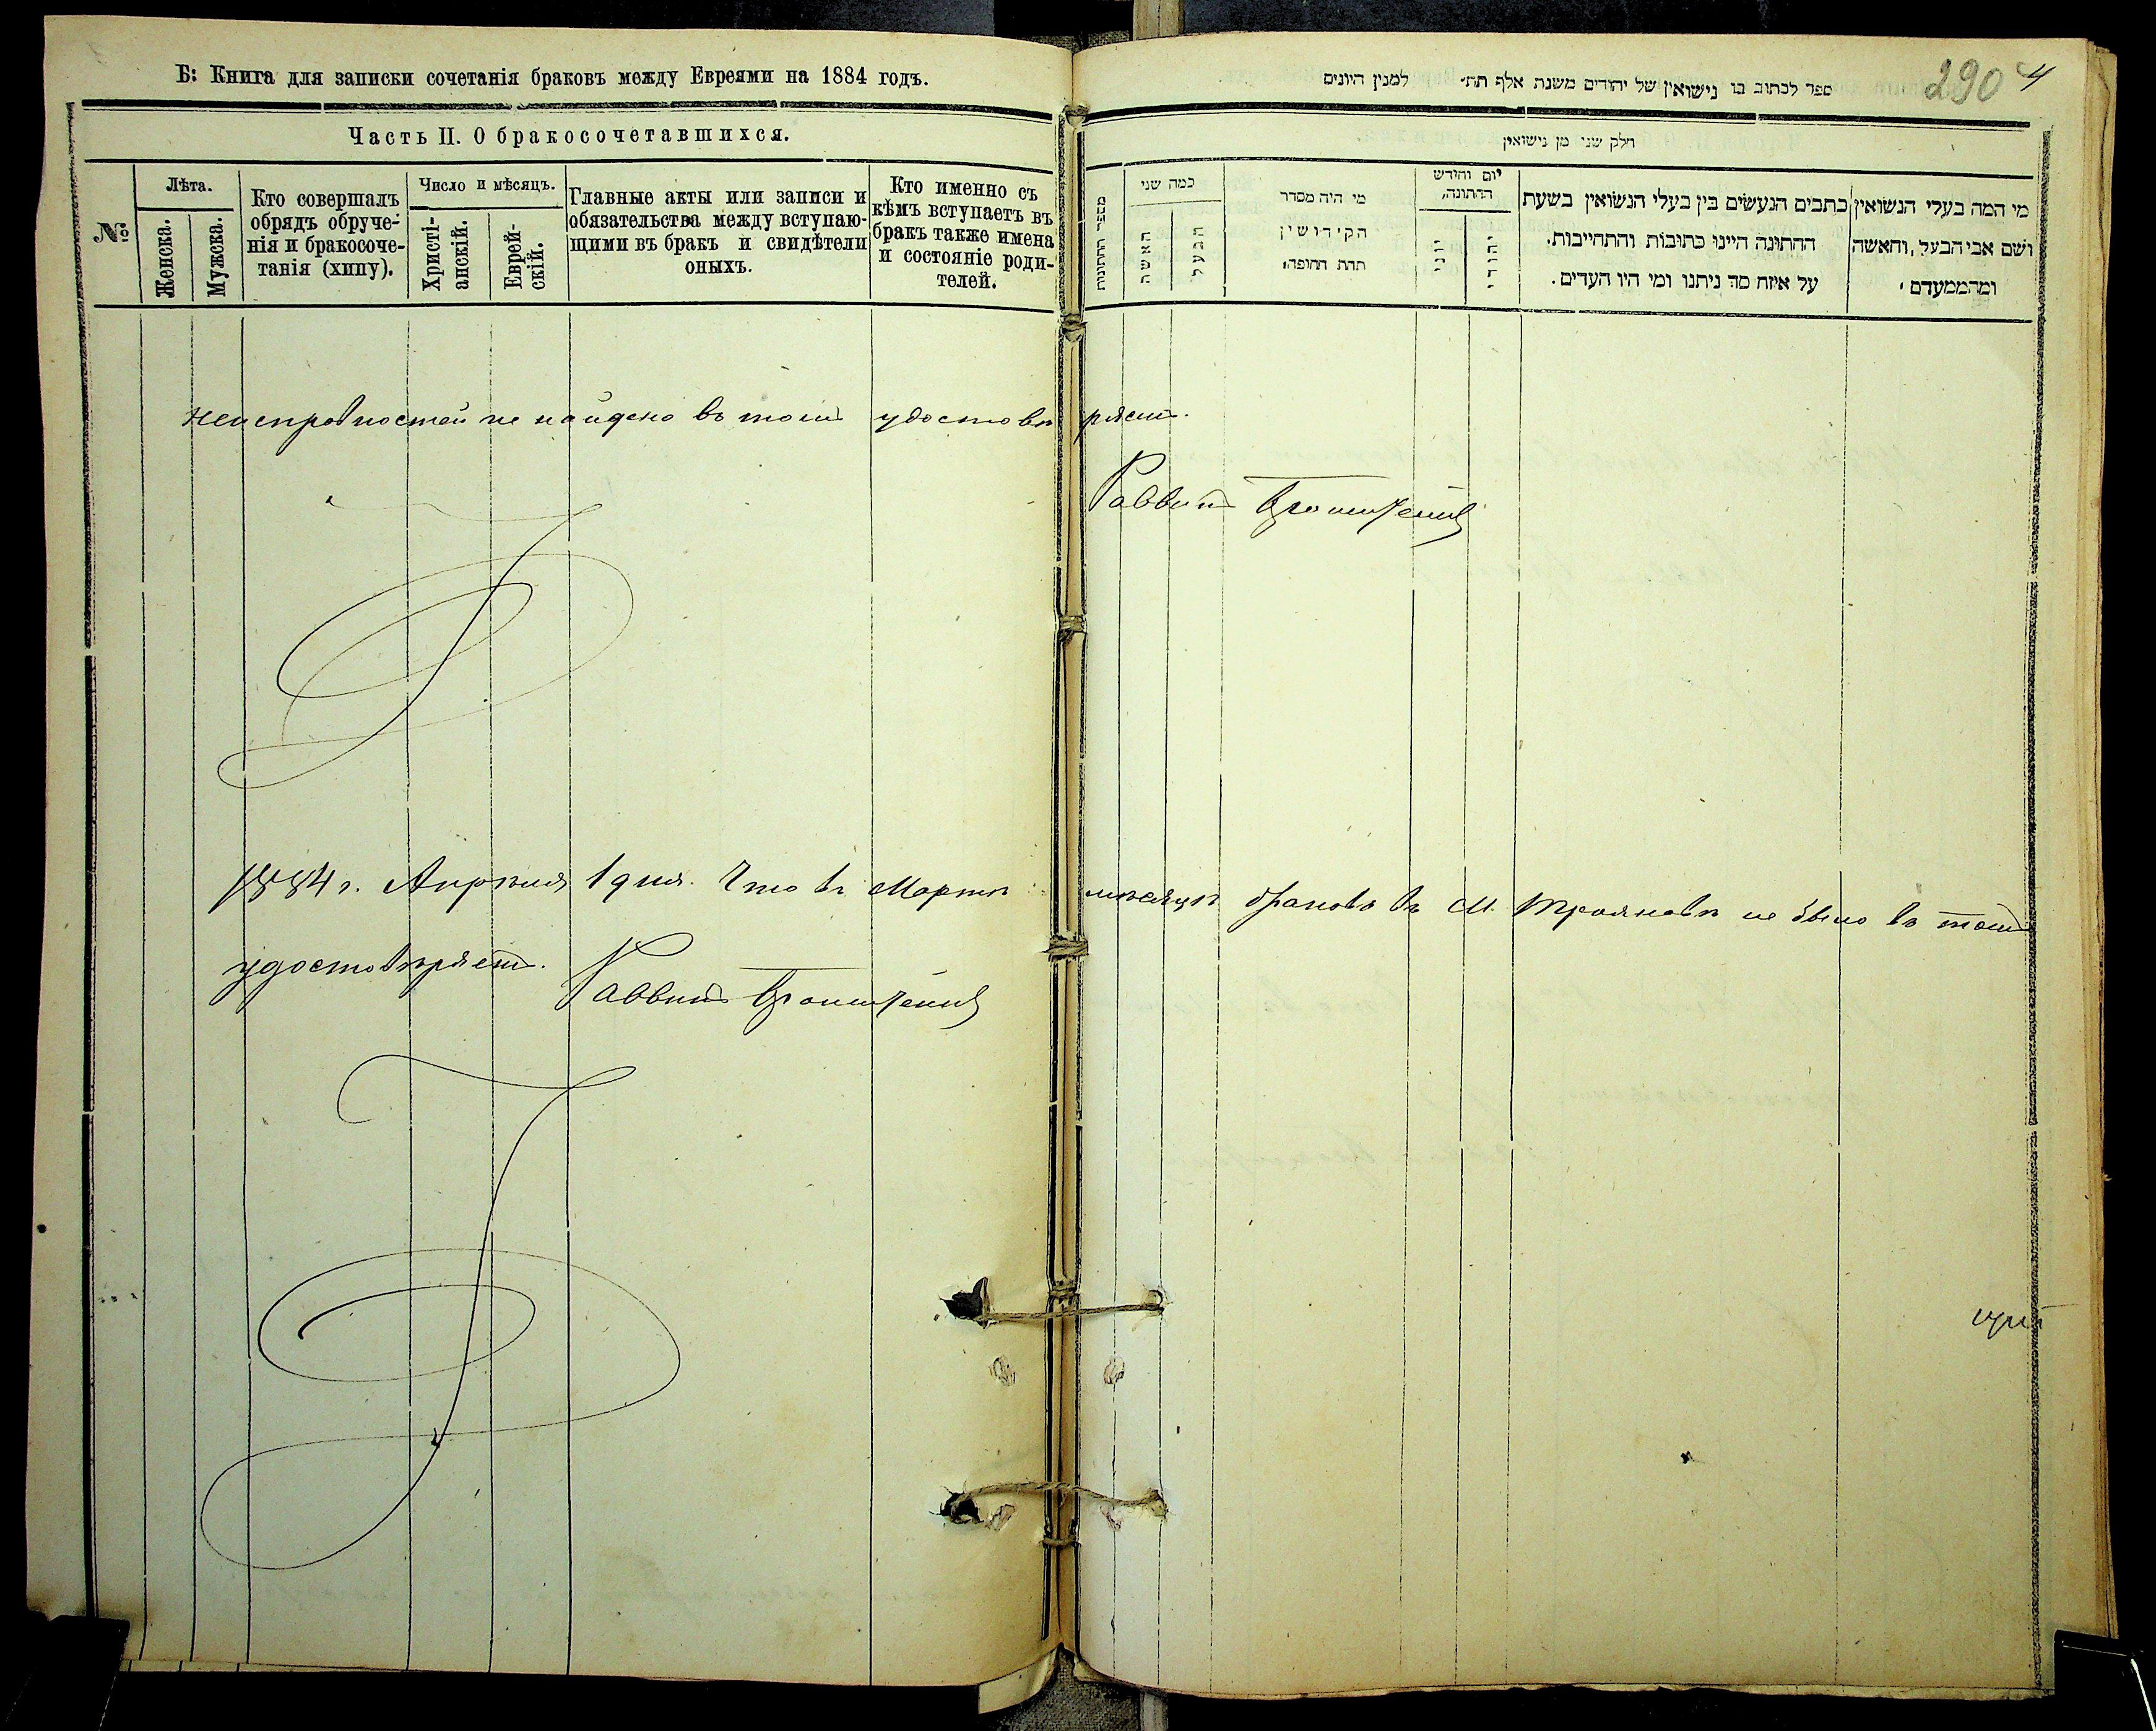 Б: Книга для записки сочетанія браковъ между Евреями на 1884 годъ.
Часть II. О бракосочетавшихся.
№
Лѣта.
Женска.
Мужска.
Кто совершалъ
обрядъ обруче-
нія и бракосоче-
танія (хипу).
Число и мѣсяцъ.
Христі-
анскій.
Еврей-
скій.
Главные акты или записи и
обязательства между вступаю-
щими въ бракъ и свидѣтели
оныхъ.
Кто именно съ
кѣмъ вступаетъ въ
бракъ также имена
и состояніе роди-
телей.
290 4
ספר לכתוב בו נישואין של יהודים משנת אלף תת״ למנין היונים
חלק שני מן נישואין
מי המה בעלי הנשואין
ושם אבי הבעל, והאשה
ומהממעדם
כתבים הנעשים בין בעלי הנשואין בשעת
החתונה היינו כתובות והתחייבות.
על איזה סך ניתנו ומי היו העדים.
יום וחודש
החתונה,
יהודי
יוני
מי היה מסדר
הקידושין
תחת החופה,
כמה שני
הבעל
האשה
מספר החתונות
неисправностей не найдено въ томъ удостовѣряетъ.
Раввинъ
1884 г. Апрѣля 1 дня. Что въ Мартѣ мѣсяцѣ браковъ въ М. Трояновѣ не было въ томъ
удостовѣряетъ. Раввинъ